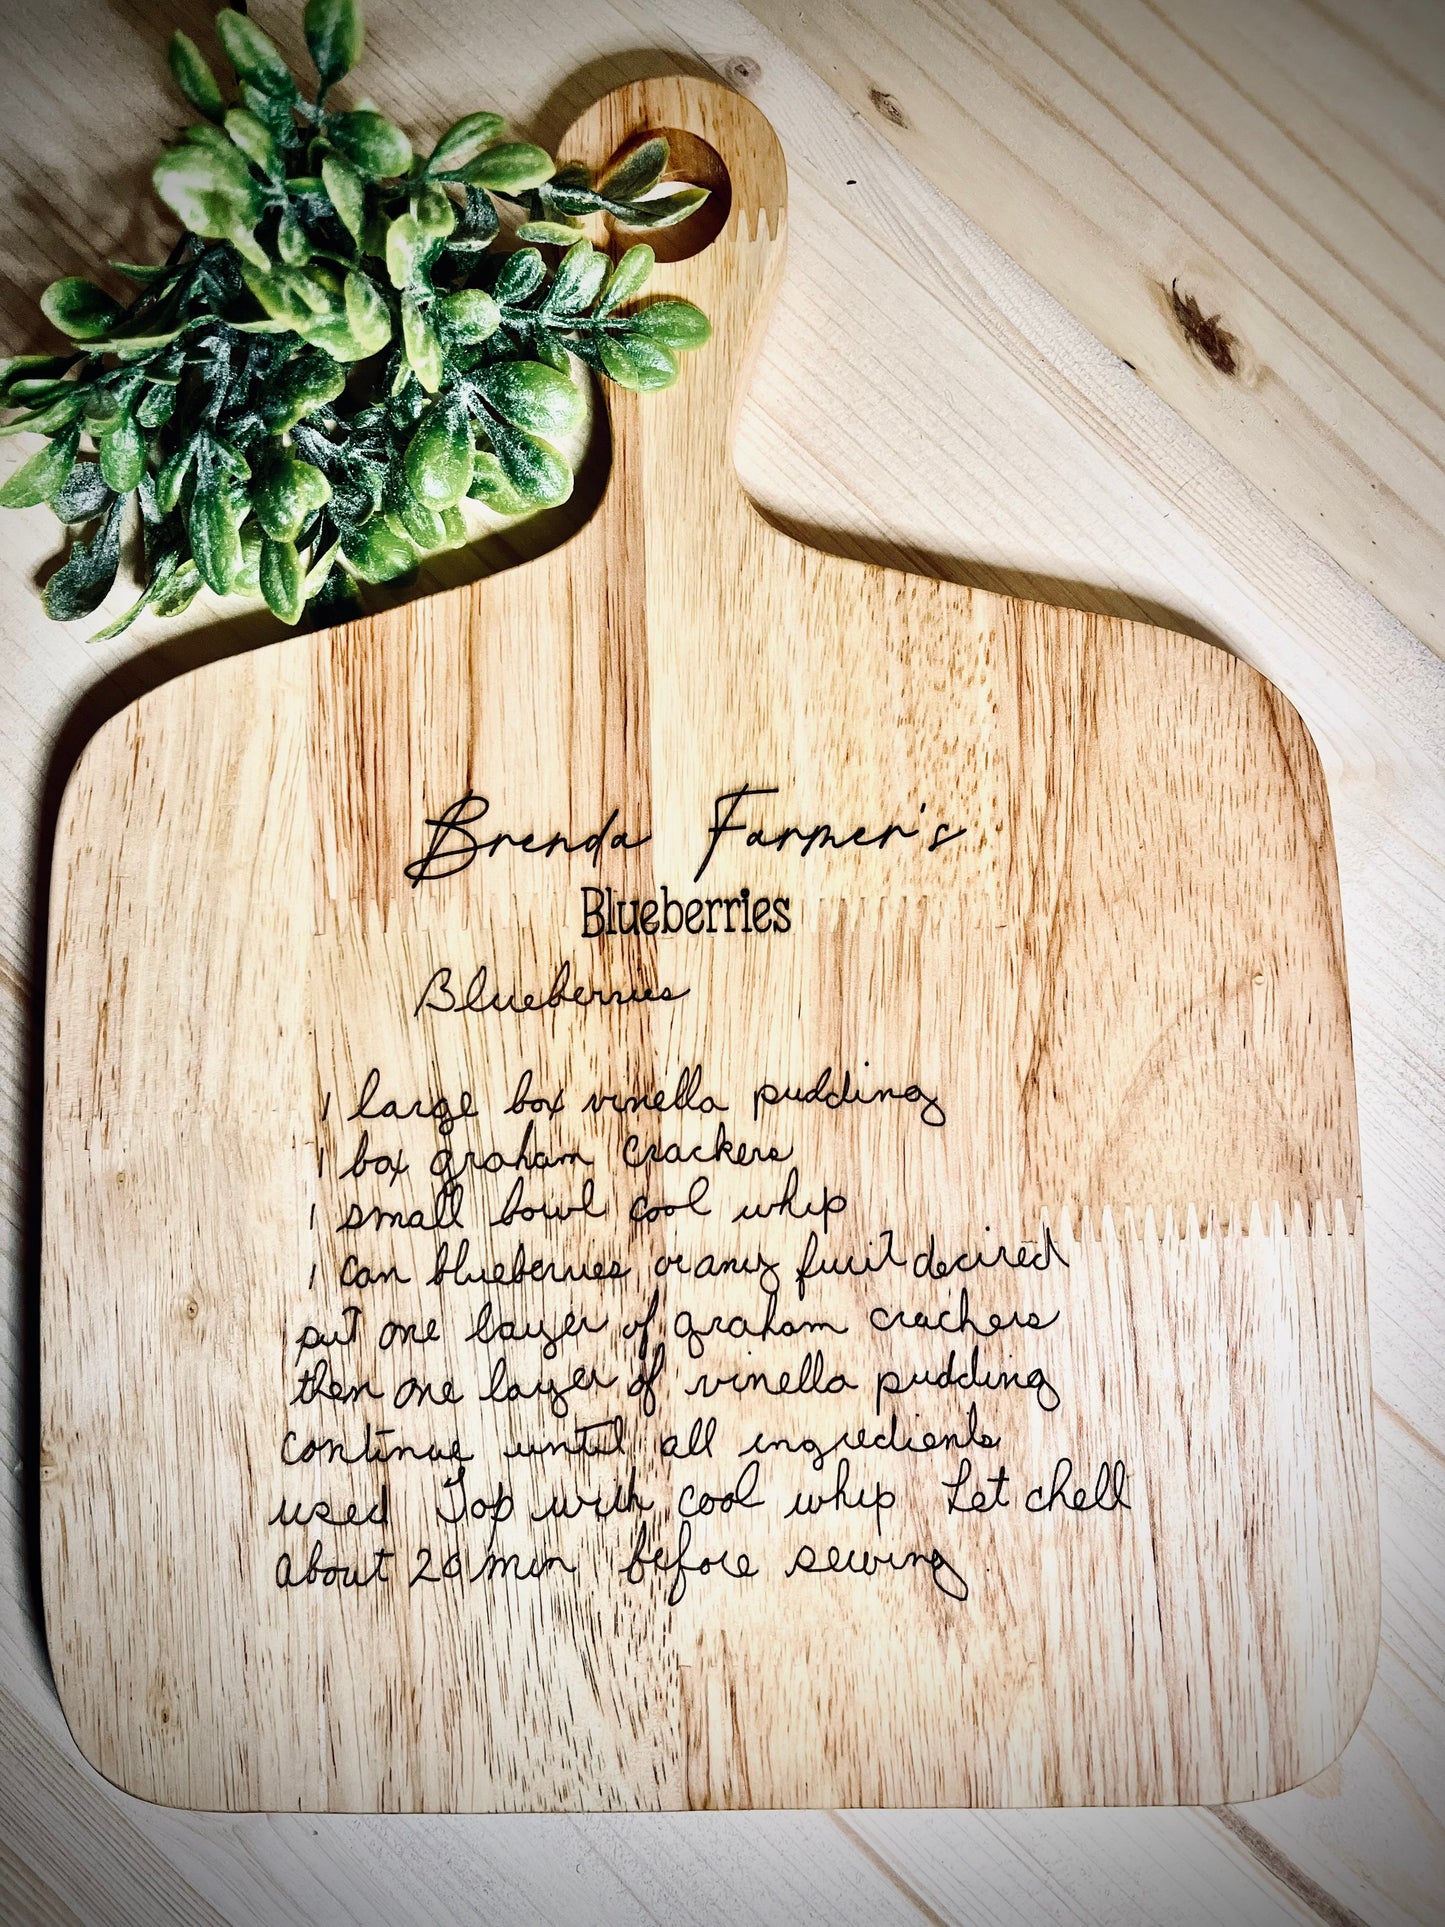 Brenda Farmer's
Blueberries
Blueberries
1 large box vinella pudding
1 box graham crackers
1 small bowl cool whip
1 can blueberries or any fruit decired
put one layer of graham crackers
then one layer of vinella pudding
continue until all ingredients
used Top with cool whip Let chell
about 20 min before serving